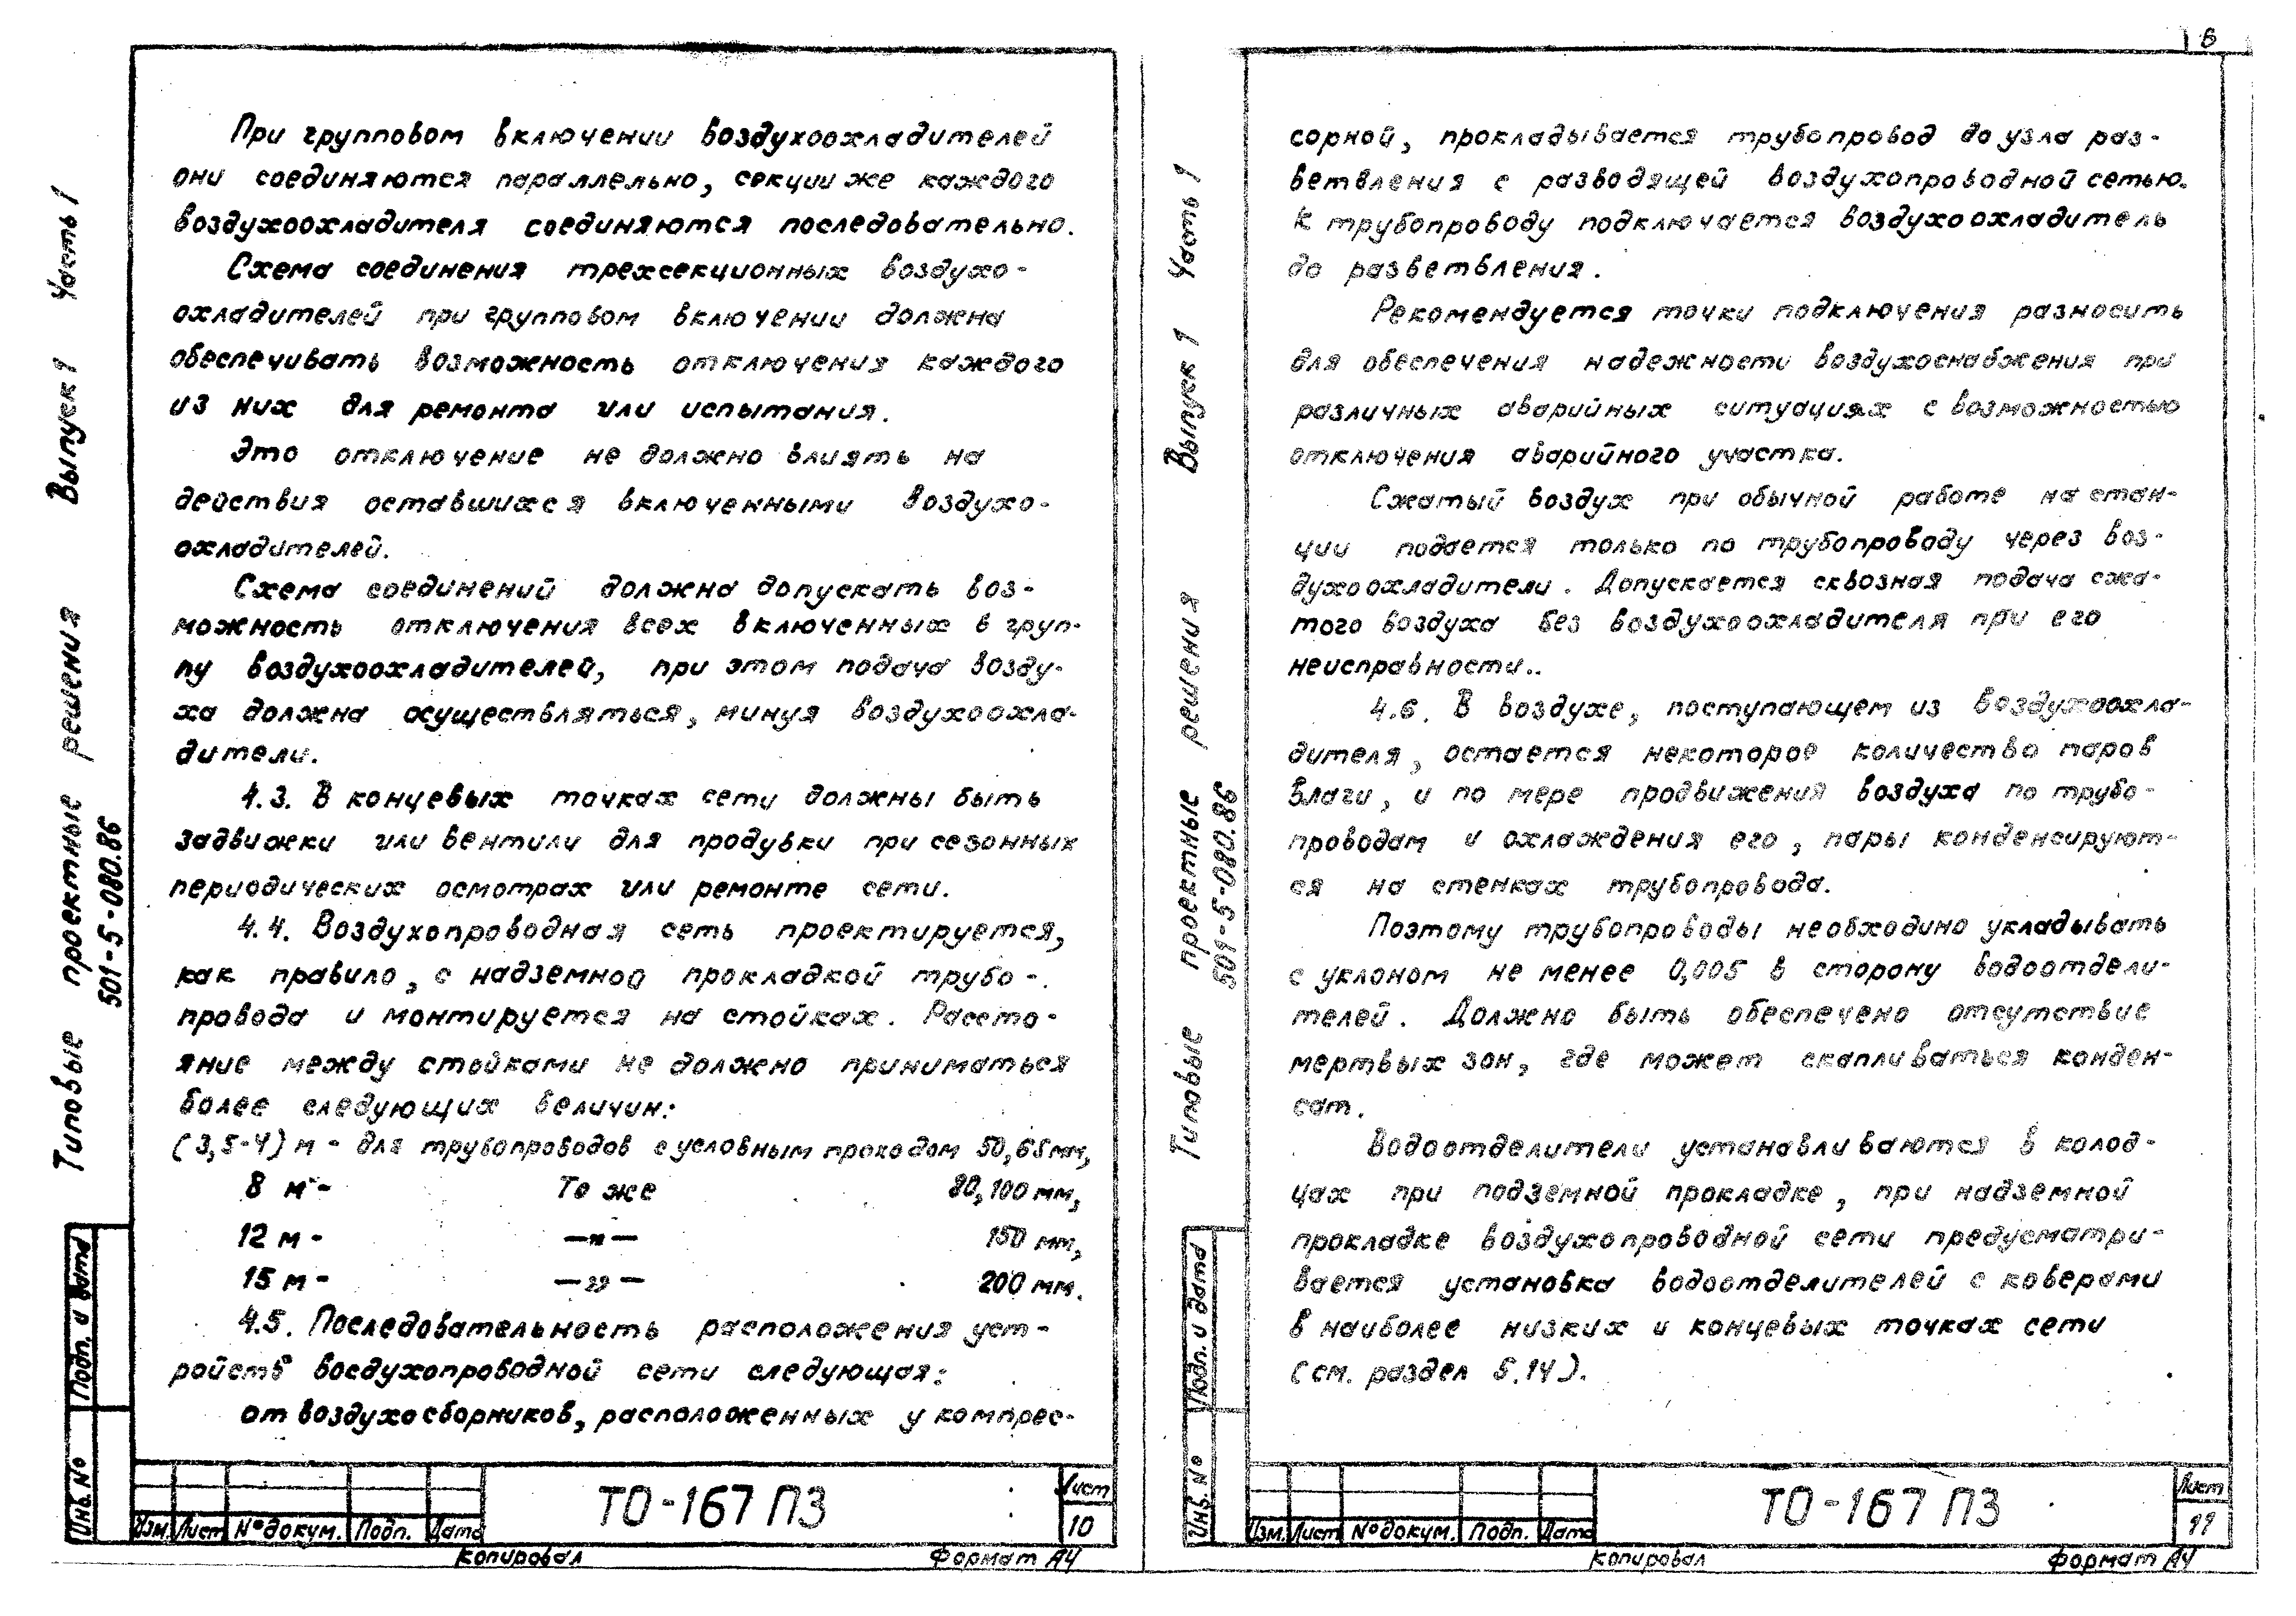 При групповом включении воздухоохладителей
они соединяются параллельно, секции же каждого
воздухоохладителя соединяются последовательно.
Схема соединения трехсекционных воздухо-
охладителей при групповом включении должна
обеспечивать возможность отключения каждого
из них для ремонта или испытания.
Это отключение не должно влиять на
действия оставшихся включенными воздухо-
охладителей.
Схема соединений должна допускать воз-
можность отключения всех включенных в груп-
пу воздухоохладителей, при этом подача возду-
ха должна осуществляться, минуя воздухоохла-
дители.
4.3. В концевых точках сети должны быть
задвижки или вентили для продувки при сезонных
периодических осмотрах или ремонте сети.
4.4. Воздухопроводная сеть проектируется,
как правило, с надземной прокладкой трубо-
провода и монтируется на стойках. Рассто-
яние между стойками не должно приниматься
более следующих величин:
(3,5-4) м - для трубопроводов с условным проходом 50,65 мм,
8 м - То же 80,100 мм,
12 м - —"— 150 мм,
15 м - —"— 200 мм.
4.5. Последовательность расположения уст-
ройств восдухопроводной сети следующая:
от воздухосборников, расположенных у компрес-
Типовые проектные решения Выпуск 1 Часть 1
501-5-080.86
Инв. № Подп. и дата
Изм. Лист № докум. Подп. Дата
ТО-167 ПЗ
Лист
10
Копировал Формат А4
6
сорной, прокладывается трубопровод до узла раз-
ветвления с разводящей воздухопроводной сетью.
К трубопроводу подключается воздухоохладитель
до разветвления.
Рекомендуется точки подключения разносить
для обеспечения надежности воздухоснабжения при
различных аварийных ситуациях с возможностью
отключения аварийного участка.
Сжатый воздух при обычной работе на стан-
ции подается только по трубопроводу через воз-
духоохладители. Допускается сквозная подача сжа-
того воздуха без воздухоохладителя при его
неисправности..
4.6. В воздухе, поступающем из воздухоохла-
дителя, остается некоторое количество паров
влаги, и по мере продвижения воздуха по трубо-
проводам и охлаждения его, пары конденсируют-
ся на стенках трубопровода.
Поэтому трубопроводы необходимо укладывать
с уклоном не менее 0,005 в сторону водоотдели-
телей. Должно быть обеспечено отсутствие
мертвых зон, где может скапливаться конден-
сат.
Водоотделители устанавливаются в колод-
цах при подземной прокладке, при надземной
прокладке воздухопроводной сети предусматри-
вается установка водоотделителей с коверами
в наиболее низких и концевых точках сети
(см. раздел 5.14).
Типовые проектные решения Выпуск 1 Часть 1
501-5-080.86
Инв. № Подп. и дата
Изм. Лист № докум. Подп. Дата
ТО-167 ПЗ
Лист
11
Копировал Формат А4